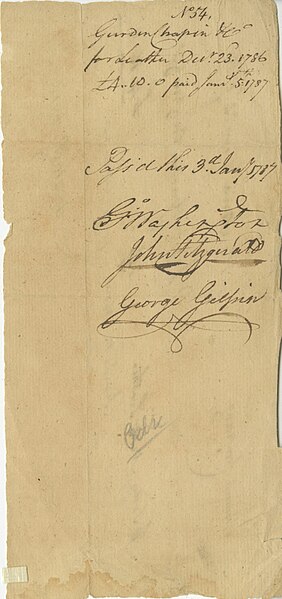 No. 54,
Gurden Chapin & Co
for Leather Decr. 23d. 1786
£4..10..0 paid Janr. 5th 1787
Passd this 3d. Jany 1787
Go Washington
John Fitzgerald
George Gilpin